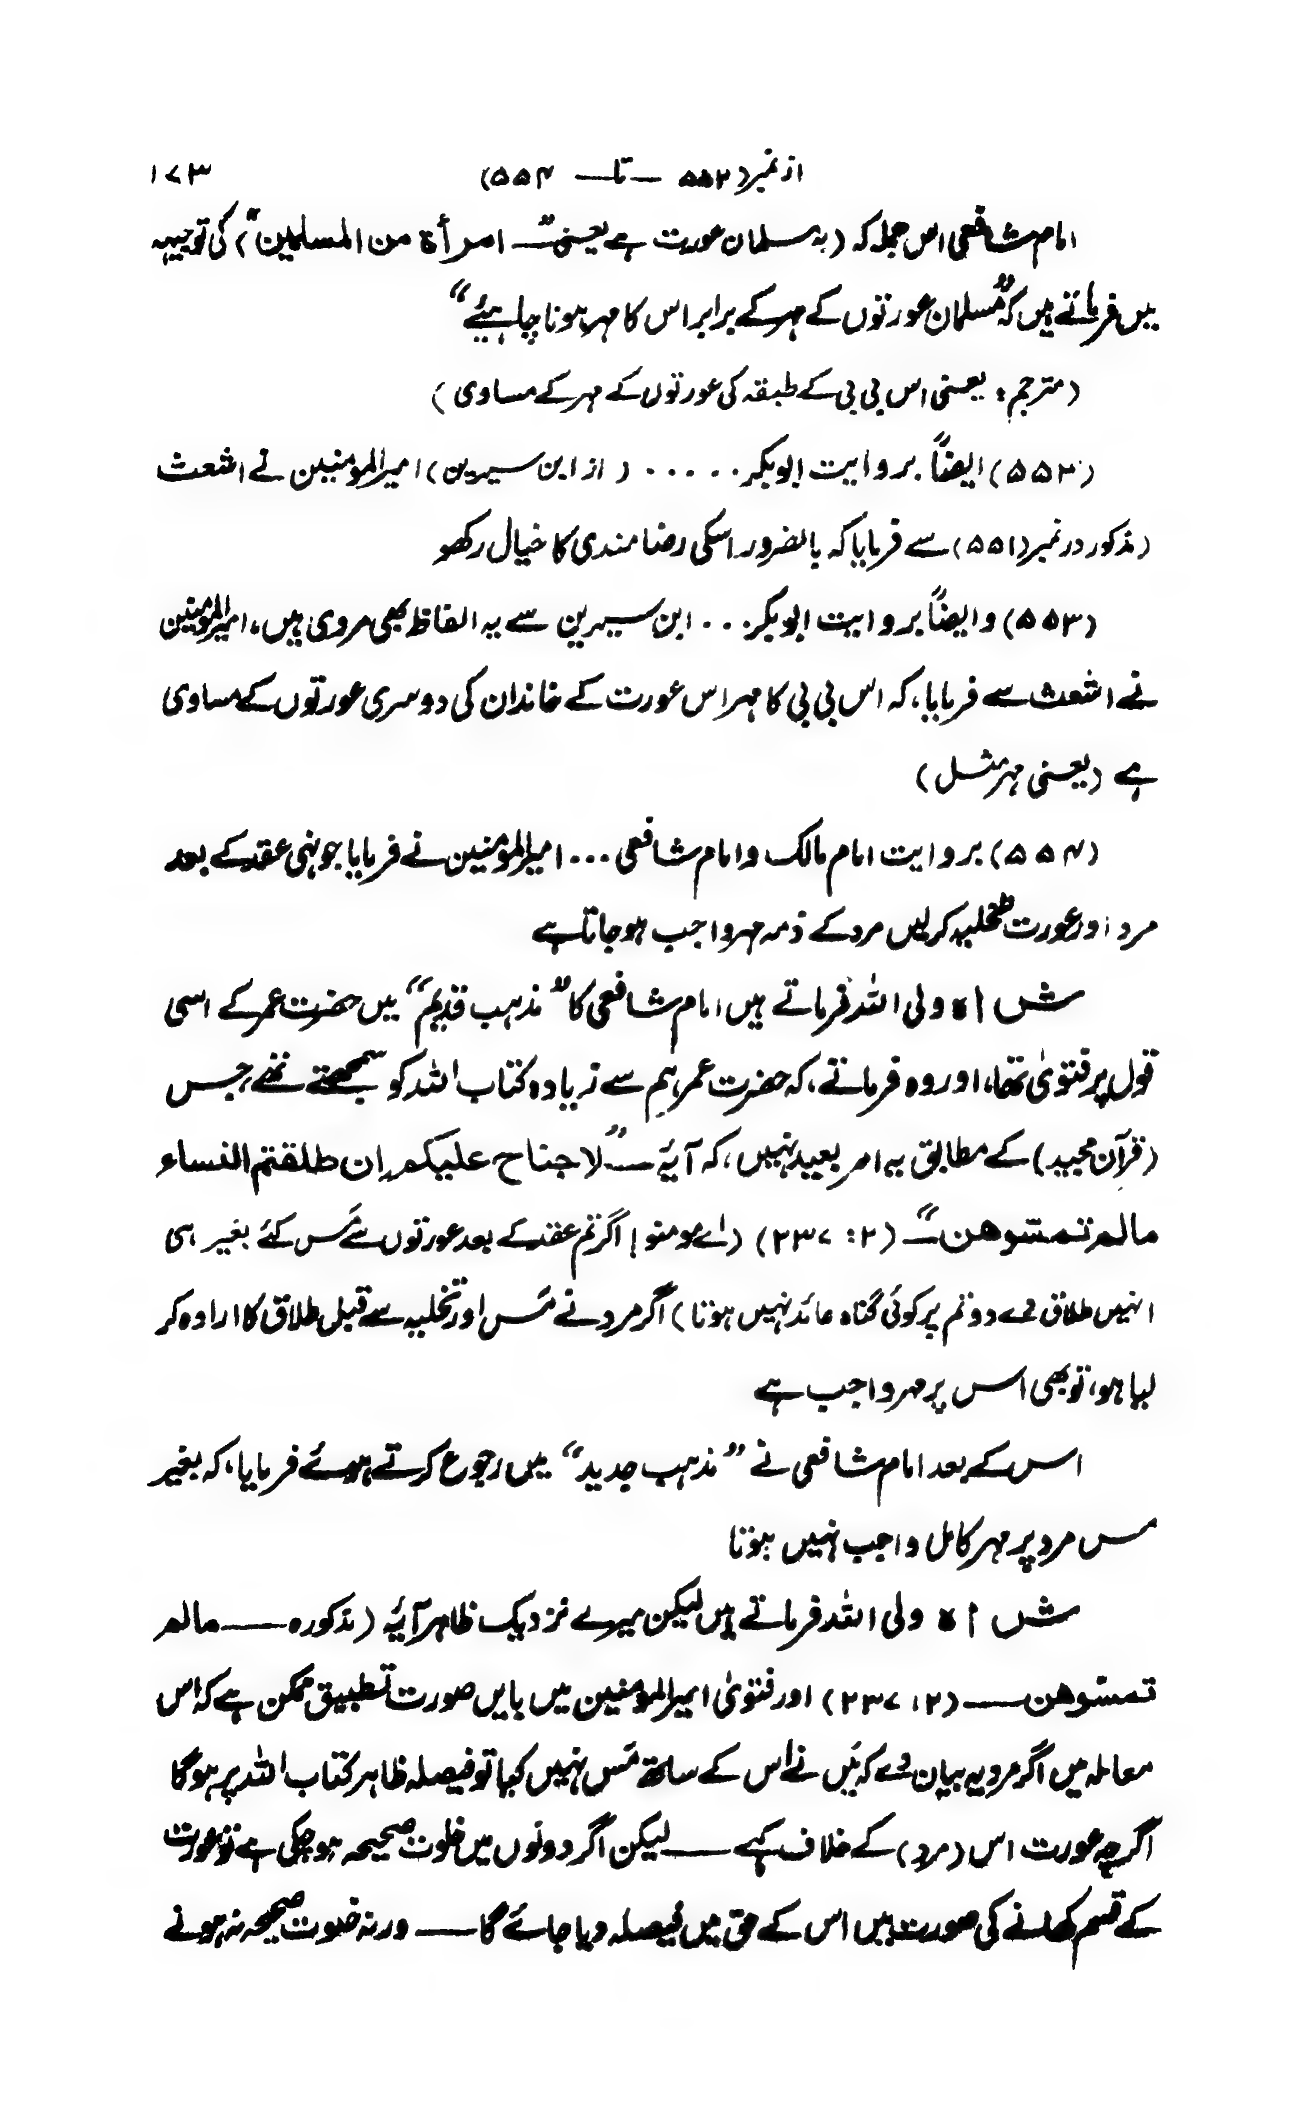 از نمبر (۵۵۲ — تا — ۵۵۴) ۱۷۳
امام شافعی اس جملہ کہ (بہ مسلمان عورت ہے یعنی "— امرأة من المسلمین") کی توجیہہ
میں فرماتے ہیں کہ "مسلمان عورتوں کے مہر کے برابر اس کا مہر ہونا چاہیئے"
(مترجم: یعنی اس بی بی کے طبقہ کی عورتوں کے مہر کے مساوی)
(۵۵۲) ایضاً بروایت ابوبکر ..... (از ابن سیرین) امیرالمومنین نے اشعث
(مذکور در نمبر (۵۵۱) سے فرمایا کہ بالضرور اسکی رضامندی کا خیال رکھو
(۵۵۳) و ایضاً بروایت ابوبکر ... ابن سیرین سے یہ الفاظ بھی مروی ہیں، امیرالمومنین
نے اشعث سے فرمایا، کہ اس بی بی کا مہر اس عورت کے خاندان کی دوسری عورتوں کے مساوی
ہے (یعنی مہر مثل)
(۵۵۴) بروایت امام مالک و امام شافعی ... امیرالمومنین نے فرمایا جونہی عقد کے بعد
مرد اور عورت تخلیہ کرلیں مرد کے ذمہ مہر واجب ہو جاتا ہے
شاہ ولی اللہ فرماتے ہیں امام شافعی کا "مذہب قدیم" میں حضرت عمر کے اسی
قول پر فتویٰ تھا، اور وہ فرماتے، کہ حضرت عمر ہم سے زیادہ کتاب اللہ کو سمجھتے تھے، جس
(قرآن مجید) کے مطابق یہ امر بعید نہیں، کہ آیۂ — "لا جناح علیکم ان طلقتم النساء
مالم تمسّوهن —" (۲: ۲۳۷) (اے مومنو! اگر تم عقد کے بعد عورتوں سے مَس کئے بغیر ہی
انہیں طلاق دے دو تم پر کوئی گناہ عائد نہیں ہوتا) اگر مرد نے مَس اور تخلیہ سے قبل طلاق کا ارادہ کر
لیا ہو، تو بھی اس پر مہر واجب ہے
اس کے بعد امام شافعی نے "مذہب جدید" میں رجوع کرتے ہوئے فرمایا، کہ بغیر
مس مرد پر مہر کامل واجب نہیں ہوتا
شاہ ولی اللہ فرماتے ہیں لیکن میرے نزدیک ظاہر آیۂ (مذکورہ — مالم
تمسّوهن — (۲: ۲۳۷) اور فتویٰ امیرالمومنین میں بایں صورت تطبیق ممکن ہے کہ اس
معاملہ میں اگر مرد یہ بیان دے کہ مَیں نے اس کے ساتھ مَس نہیں کیا تو فیصلہ ظاہر کتاب اللہ پر ہوگا
اگرچہ عورت اس (مرد) کے خلاف کہے — لیکن اگر دونوں میں خلوت صحیحہ ہو چکی ہے تو عورت
کے قسم کھانے کی صورت میں اس کے حق میں فیصلہ دیا جائے گا — ورنہ خلوت صحیحہ نہ ہونے